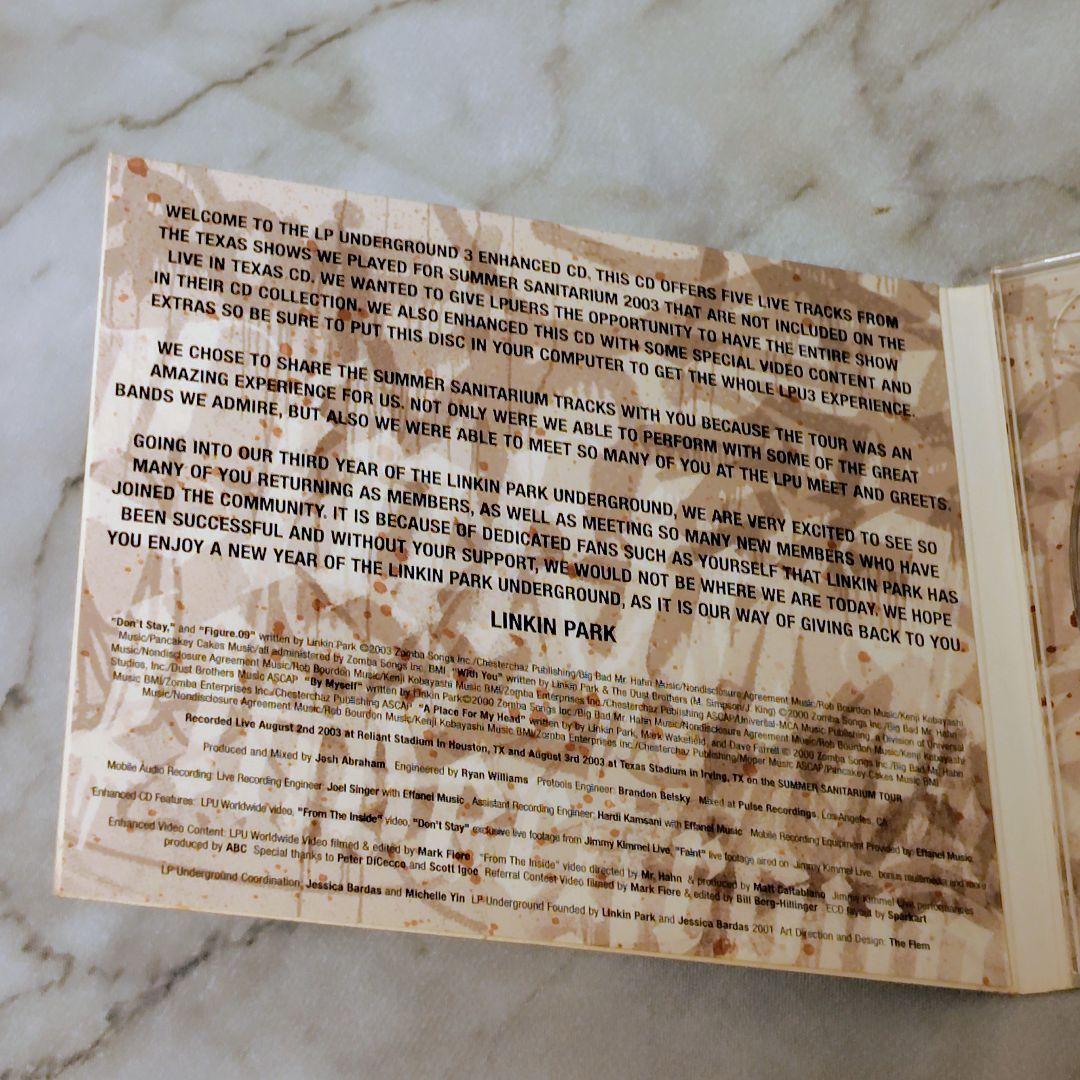 WELCOME TO THE LP UNDERGROUND 3 ENHANCED CD. THIS CD OFFERS FIVE LIVE TRACKS FROM
THE TEXAS SHOWS WE PLAYED FOR SUMMER SANITARIUM 2003 THAT ARE NOT INCLUDED ON THE
LIVE IN TEXAS CD. WE WANTED TO GIVE LPUERS THE OPPORTUNITY TO HAVE THE ENTIRE SHOW
IN THEIR CD COLLECTION. WE ALSO ENHANCED THIS CD WITH SOME SPECIAL VIDEO CONTENT AND
EXTRAS SO BE SURE TO PUT THIS DISC IN YOUR COMPUTER TO GET THE WHOLE LPU3 EXPERIENCE.
WE CHOSE TO SHARE THE SUMMER SANITARIUM TRACKS WITH YOU BECAUSE THE TOUR WAS AN
AMAZING EXPERIENCE FOR US. NOT ONLY WERE WE ABLE TO PERFORM WITH SOME OF THE GREAT
BANDS WE ADMIRE, BUT ALSO WE WERE ABLE TO MEET SO MANY OF YOU AT THE LPU MEET AND GREETS.
GOING INTO OUR THIRD YEAR OF THE LINKIN PARK UNDERGROUND, WE ARE VERY EXCITED TO SEE SO
MANY OF YOU RETURNING AS MEMBERS, AS WELL AS MEETING SO MANY NEW MEMBERS WHO HAVE
JOINED THE COMMUNITY. IT IS BECAUSE OF DEDICATED FANS SUCH AS YOURSELF THAT LINKIN PARK HAS
BEEN SUCCESSFUL AND WITHOUT YOUR SUPPORT, WE WOULD NOT BE WHERE WE ARE TODAY. WE HOPE
YOU ENJOY A NEW YEAR OF THE LINKIN PARK UNDERGROUND, AS IT IS OUR WAY OF GIVING BACK TO YOU.
LINKIN PARK
"Don't Stay," and "Figure.09" written by Linkin Park ©2003 Zomba Songs Inc./Chesterchaz Publishing/Big Bad Mr. Hahn Music/Nondisclosure Agreement Music/Rob Bourdon Music/Kenji Kobayashi
Music/Pancakey Cakes Music/all administered by Zomba Songs Inc. BMI "With You" written by Linkin Park & The Dust Brothers (M. Simpson/J. King) © 2000 Zomba Songs Inc./Big Bad Mr. Hahn
Music/Nondisclosure Agreement Music/Rob Bourdon Music/Kenji Kobayashi Music BMI/Zomba Enterprises Inc./Chesterchaz Publishing ASCAP/Universal-MCA Music Publishing, a Division of Universal
Studios, Inc./Dust Brothers Music ASCAP "By Myself" written by Linkin Park ©2000 Zomba Songs Inc./Big Bad Mr. Hahn Music/Nondisclosure Agreement Music/Rob Bourdon Music/Kenji Kobayashi
Music BMI/Zomba Enterprises Inc./Chesterchaz Publishing ASCAP "A Place For My Head" written by by Linkin Park, Mark Wakefield, and Dave Farrell © 2000 Zomba Songs Inc./Big Bad Mr. Hahn
Music/Nondisclosure Agreement Music/Rob Bourdon Music/Kenji Kobayashi Music BMI/Zomba Enterprises Inc./Chesterchaz Publishing/Moper Music ASCAP/Pancakey Cakes Music BMI
Recorded Live August 2nd 2003 at Reliant Stadium in Houston, TX and August 3rd 2003 at Texas Stadium in Irving, TX on the SUMMER SANITARIUM TOUR
Produced and Mixed by Josh Abraham Engineered by Ryan Williams Protools Engineer: Brandon Belsky Mixed at Pulse Recordings, Los Angeles, CA
Mobile Audio Recording: Live Recording Engineer: Joel Singer with Effanel Music Assistant Recording Engineer: Hardi Kamsani with Effanel Music Mobile Recording Equipment Provided by: Effanel Music
Enhanced CD Features: LPU Worldwide video, "From The Inside" video, "Don't Stay" exclusive live footage from Jimmy Kimmel Live, "Faint" live footage aired on Jimmy Kimmel Live, bonus multimedia and more
Enhanced Video Content: LPU Worldwide Video filmed & edited by Mark Fiore "From The Inside" video directed by Mr. Hahn & produced by Matt Caltabiano Jimmy Kimmel Live performances
produced by ABC Special thanks to Peter DiCecco and Scott Igoe Referral Contest Video filmed by Mark Fiore & edited by Bill Berg-Hillinger ECD layout by Sparkart
LP Underground Coordination: Jessica Bardas and Michelle Yin LP Underground Founded by Linkin Park and Jessica Bardas 2001 Art Direction and Design: The Flem